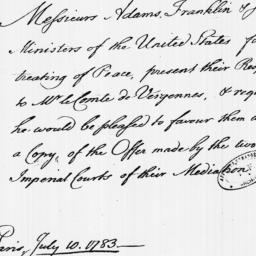 Messieurs Adams, Franklin &
Ministers of the United States fo
treating of Peace, present their Res
to Mr. le Comte de Vergennes, & req
he would be pleased to favour them
a Copy, of the Offer made by the two
Imperial Courts of their Mediation
Paris, July 10. 1783—